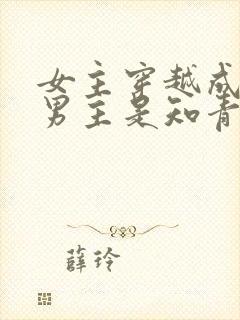 女主穿越成
男主是知青
薛玲